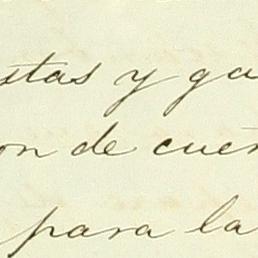 stas y ga
on de cuen
para la